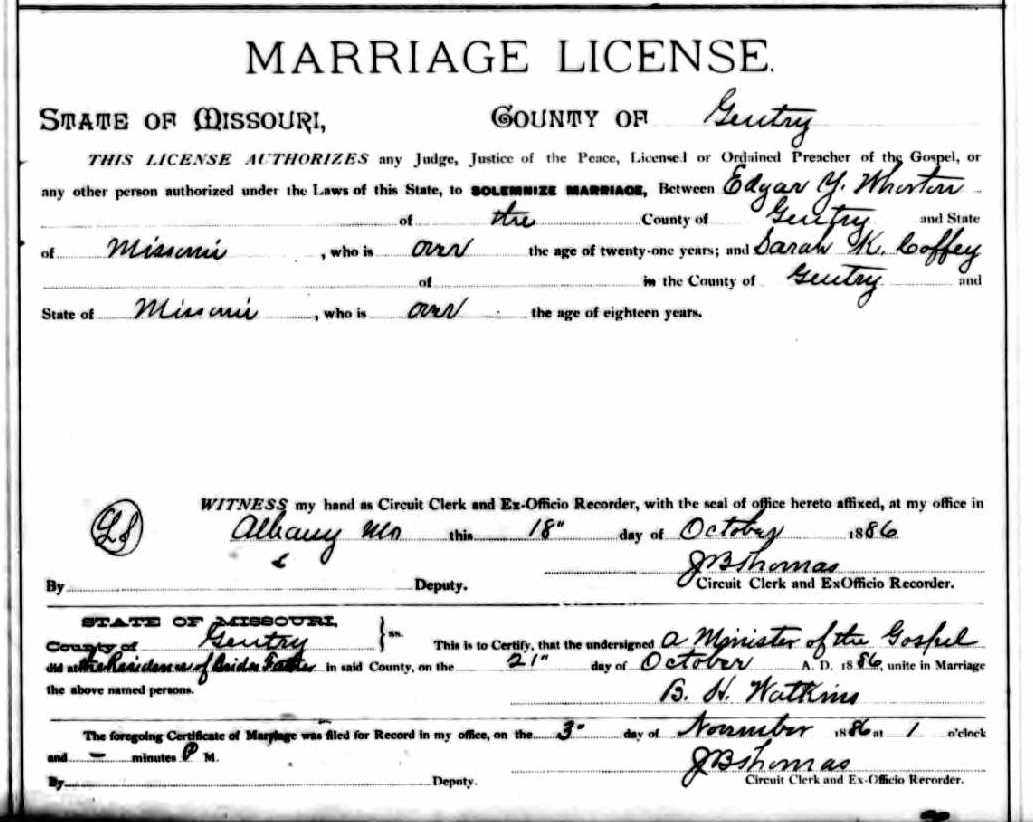 MARRIAGE LICENSE.
STATE OF MISSOURI, COUNTY OF Gentry
THIS LICENSE AUTHORIZES any Judge, Justice of the Peace, Licensed or Ordained Preacher of the Gospel, or
any other person authorized under the Laws of this State, to SOLEMNIZE MARRIAGE, Between Edgar Y. Whorton
of the County of Gentry and State
of Missouri, who is over the age of twenty-one years; and Sarah K. Coffey
of in the County of Gentry and
State of Missouri, who is over the age of eighteen years.
WITNESS my hand as Circuit Clerk and Ex-Officio Recorder, with the seal of office hereto affixed, at my office in
LS Albany Mo this 18" day of October 1886
J B Thomas
By Deputy. Circuit Clerk and ExOfficio Recorder.
STATE OF MISSOURI,
County of Gentry } ss. This is to Certify, that the undersigned a Minister of the Gospel
did at the Residence of Brides Father in said County, on the 21" day of October A. D. 1886, unite in Marriage
the above named persons. B. H. Watkins
The foregoing Certificate of Marriage was filed for Record in my office, on the 3" day of November 1886 at 1 o'clock
and – minutes P M. J B Thomas
By Deputy. Circuit Clerk and Ex-Officio Recorder.